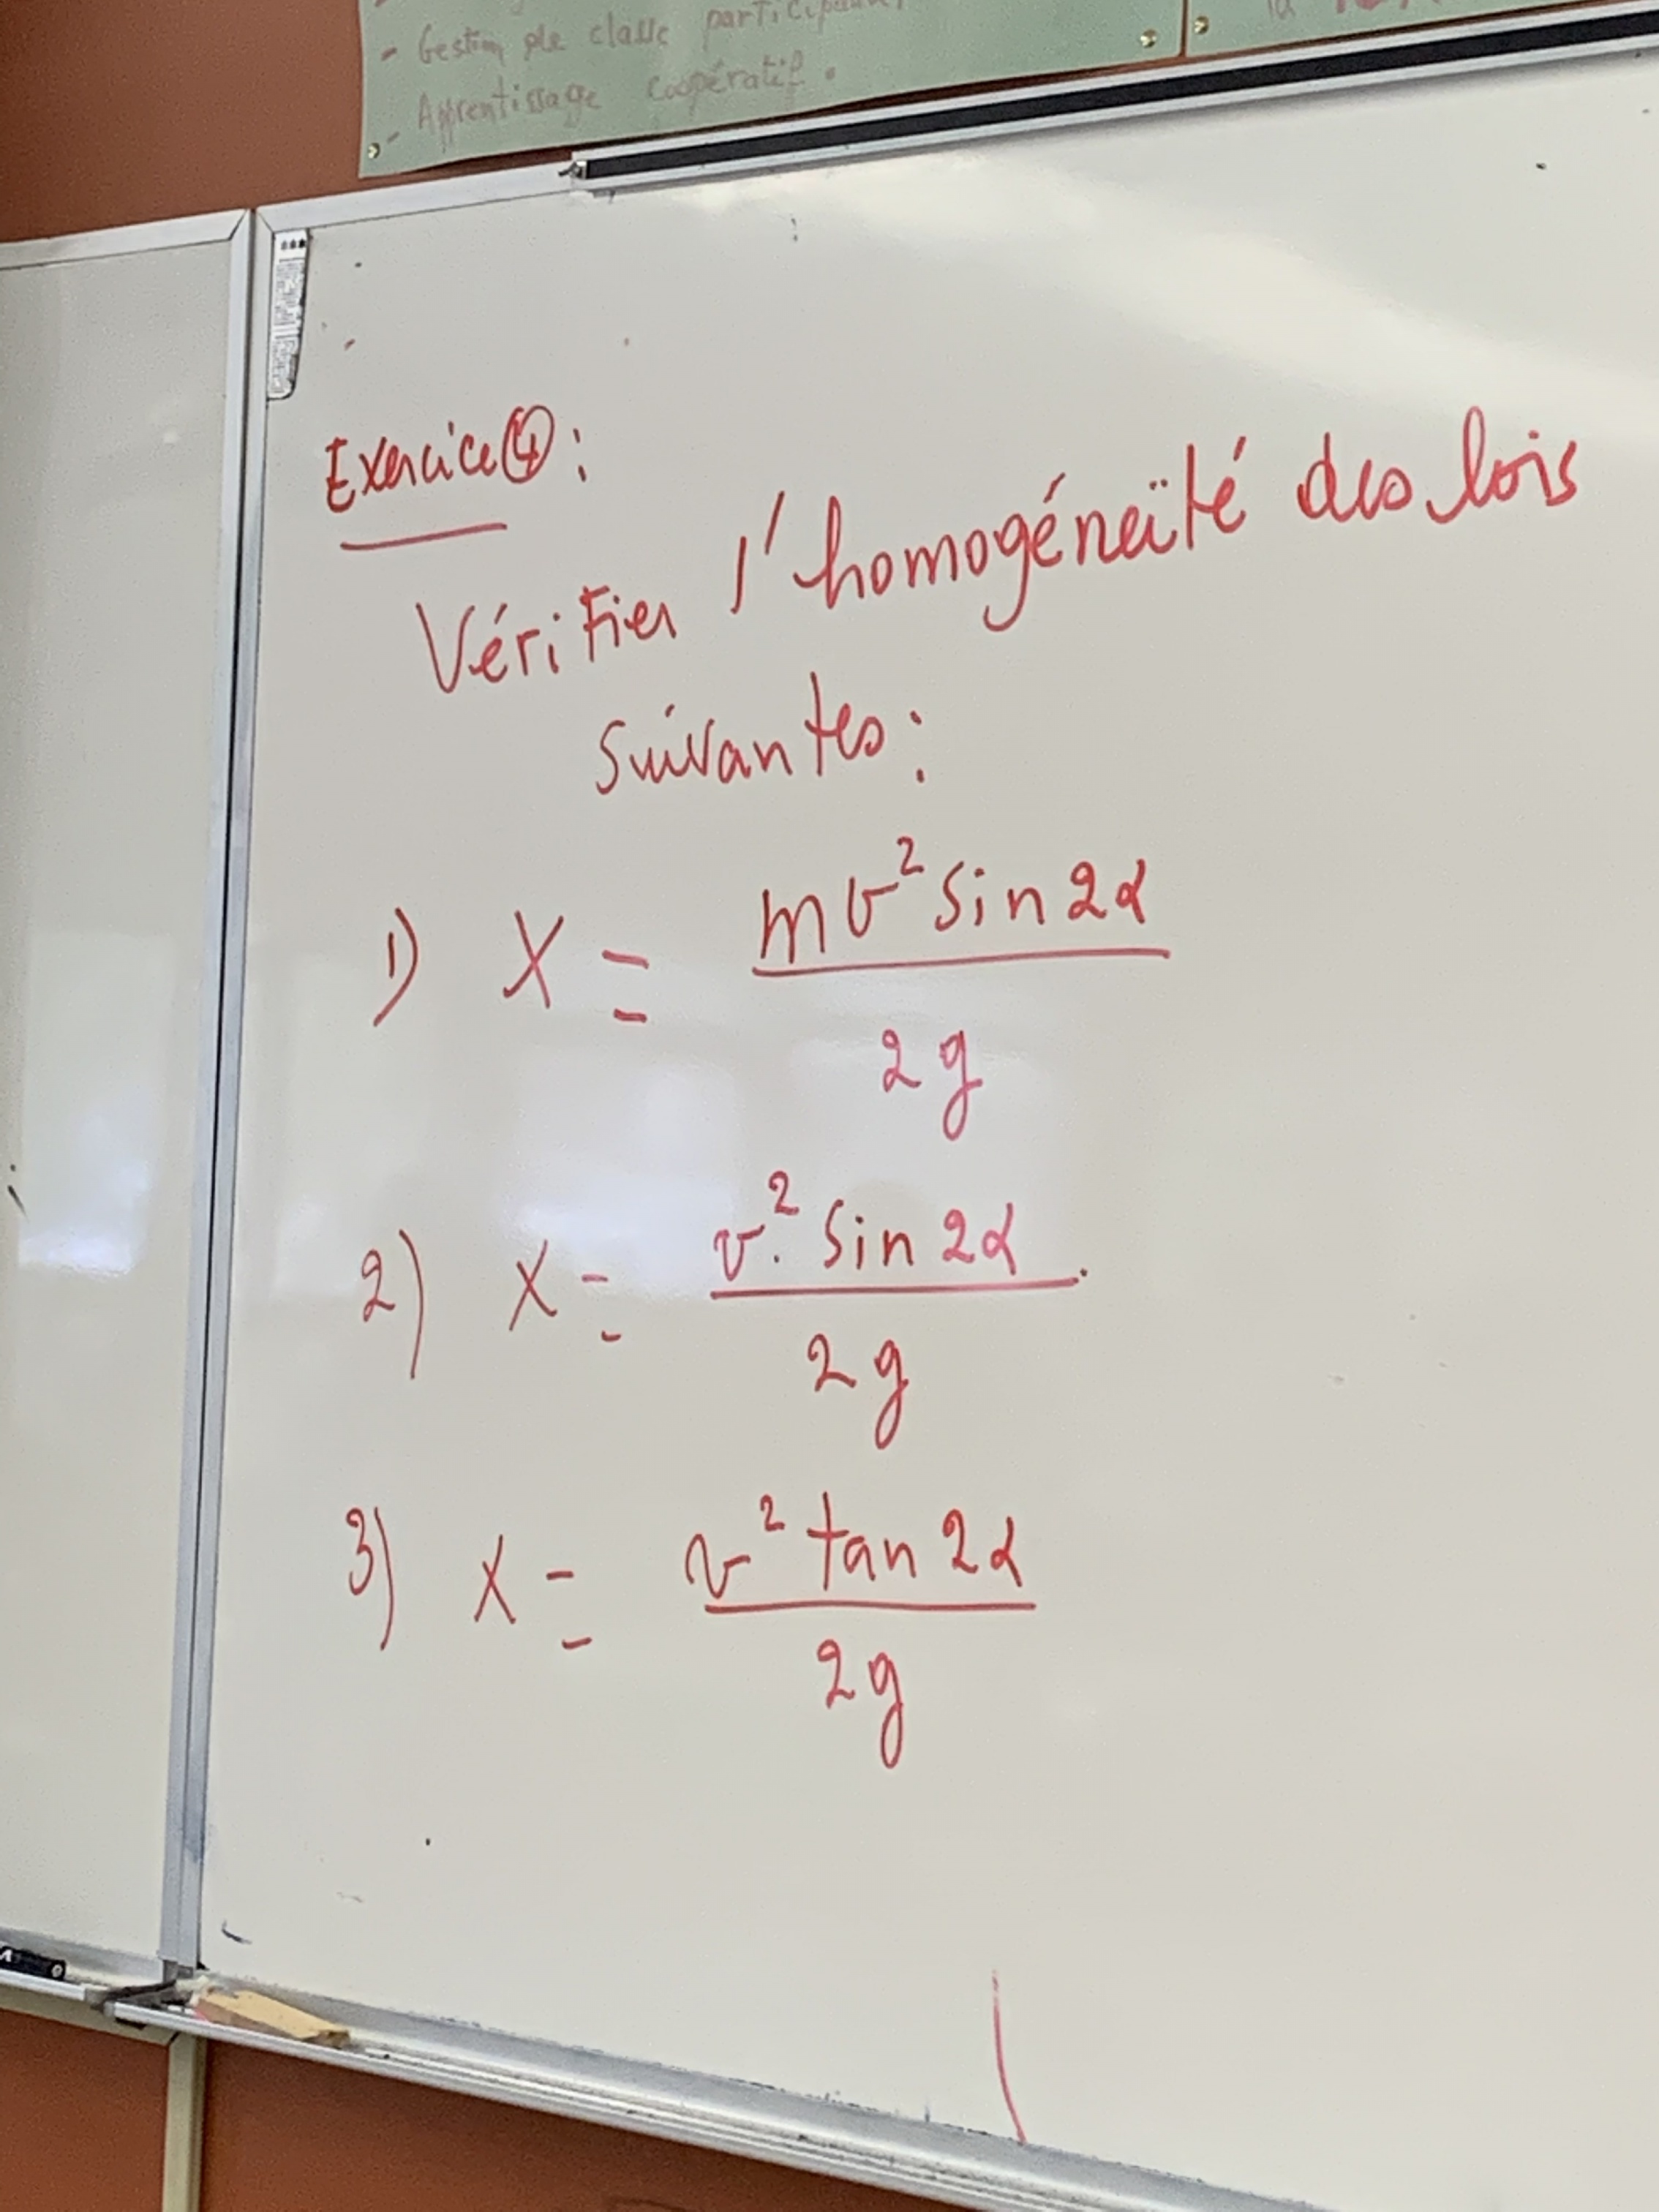 - Gestion de classe
- Apprentissage coopératif.
la
Exercice ④:
Vérifier l'homogénéïté des lois
suivantes:
1) X = mv² sin 2α / 2g
2) X = v². sin 2α / 2g
3) X = v² tan 2α / 2g